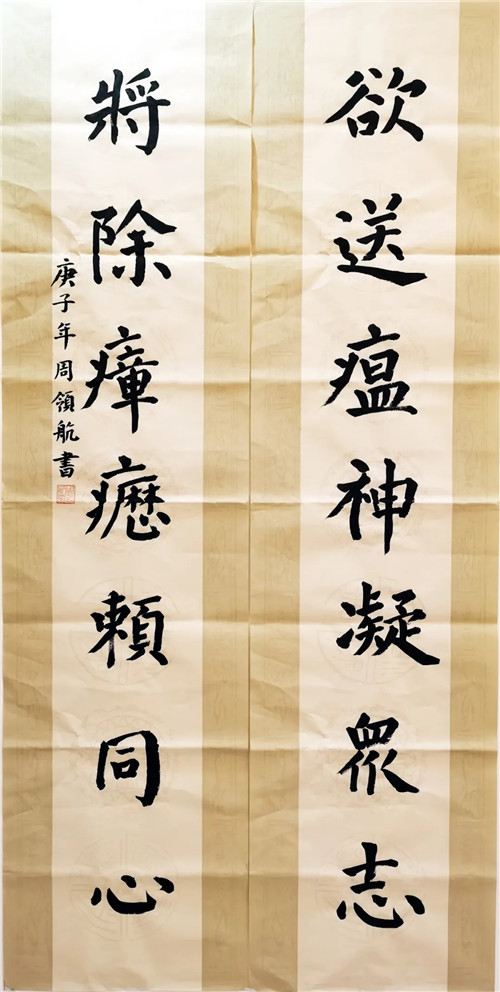 欲送瘟神凝眾志
將除瘴癧賴同心
庚子年周領航書